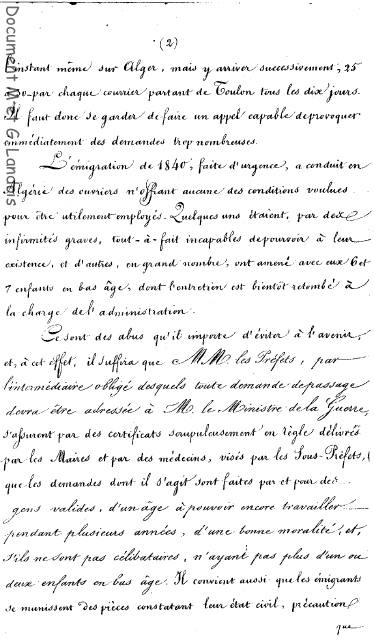 (2)
l'instant même sur Alger, mais y arriver successivement, 25
30 par chaque courrier partant de Toulon tous les dix jours.
Il faut donc se garder de faire un appel capable de provoquer
immédiatement des demandes trop nombreuses.
L'émigration de 1840, faite d'urgence, a conduit en
Algérie des ouvriers n'offrant aucune des conditions voulues
pour être utilement employés. Quelques uns étaient, par des
infirmités graves, tout-à-fait incapables de pourvoir à leur
existence, et d'autres, en grand nombre, ont amené avec eux 6 et
7 enfants en bas âge, dont l'entretien est bientôt retombé à
la charge de l'administration.
Ce sont des abus qu'il importe d'éviter à l'avenir,
et, à cet effet, il suffira que MM. les Préfets, par
l'intermédiaire obligé desquels toute demande de passage
devra être adressée à M. le Ministre de la Guerre,
s'assurent par des certificats scrupuleusement en règle délivrés
par les Maires et par des médecins, visés par les Sous-Préfets,
que les demandes dont il s'agit sont faites par et pour des
gens valides, d'un âge à pouvoir encore travailler
pendant plusieurs années, d'une bonne moralité, et,
s'ils ne sont pas célibataires, n'ayant pas plus d'un ou
deux enfants en bas âge. Il convient aussi que les émigrants
se munissent des pièces constatant leur état civil, précaution
que
Document M et G Landers